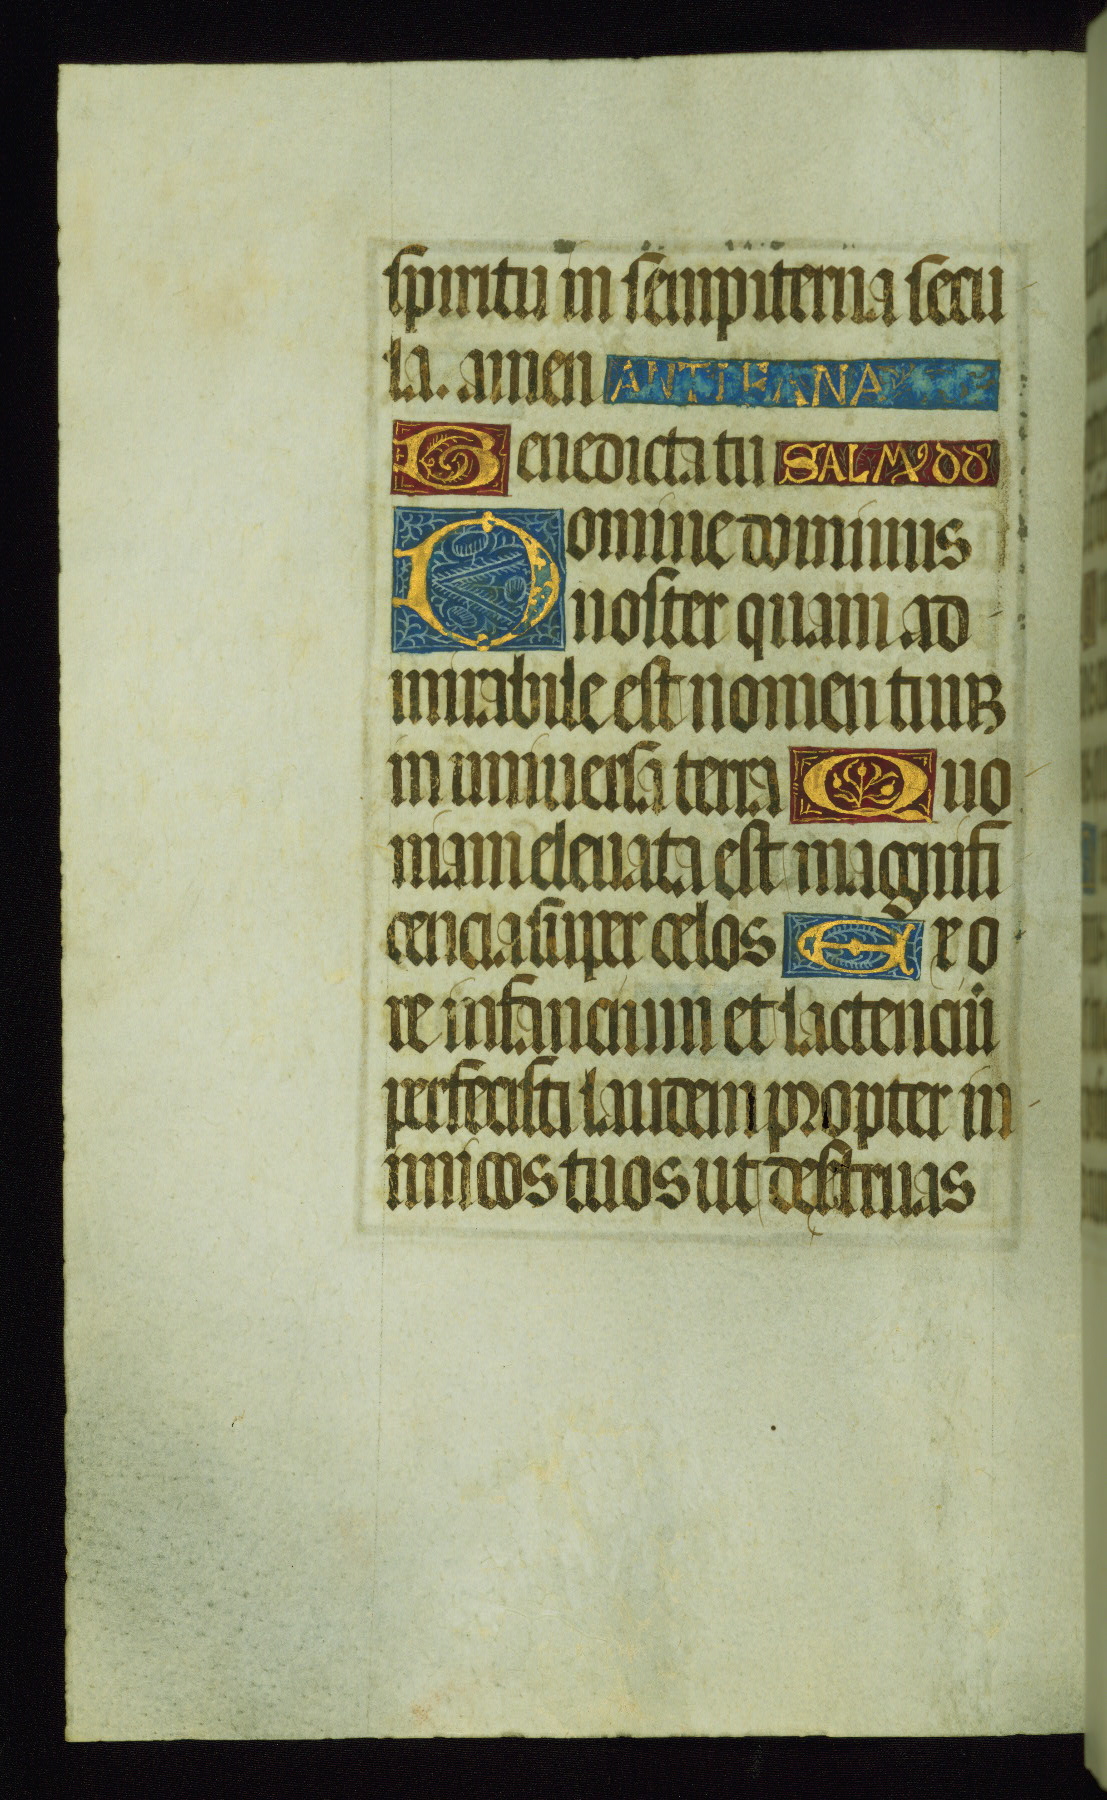 spiritu in sempiterna secu
la. amen ANTIFANA
Benedicta tu SALMꝰ dd
Domine dominus
noster quam ad
mirabile est nomen tuuꝫ
in universa terra Quo
niam elevata est magnifi
cencia super celos Ex o
re infancium et lactenciū
perfecisti laudem propter in
imicos tuos ut destruas